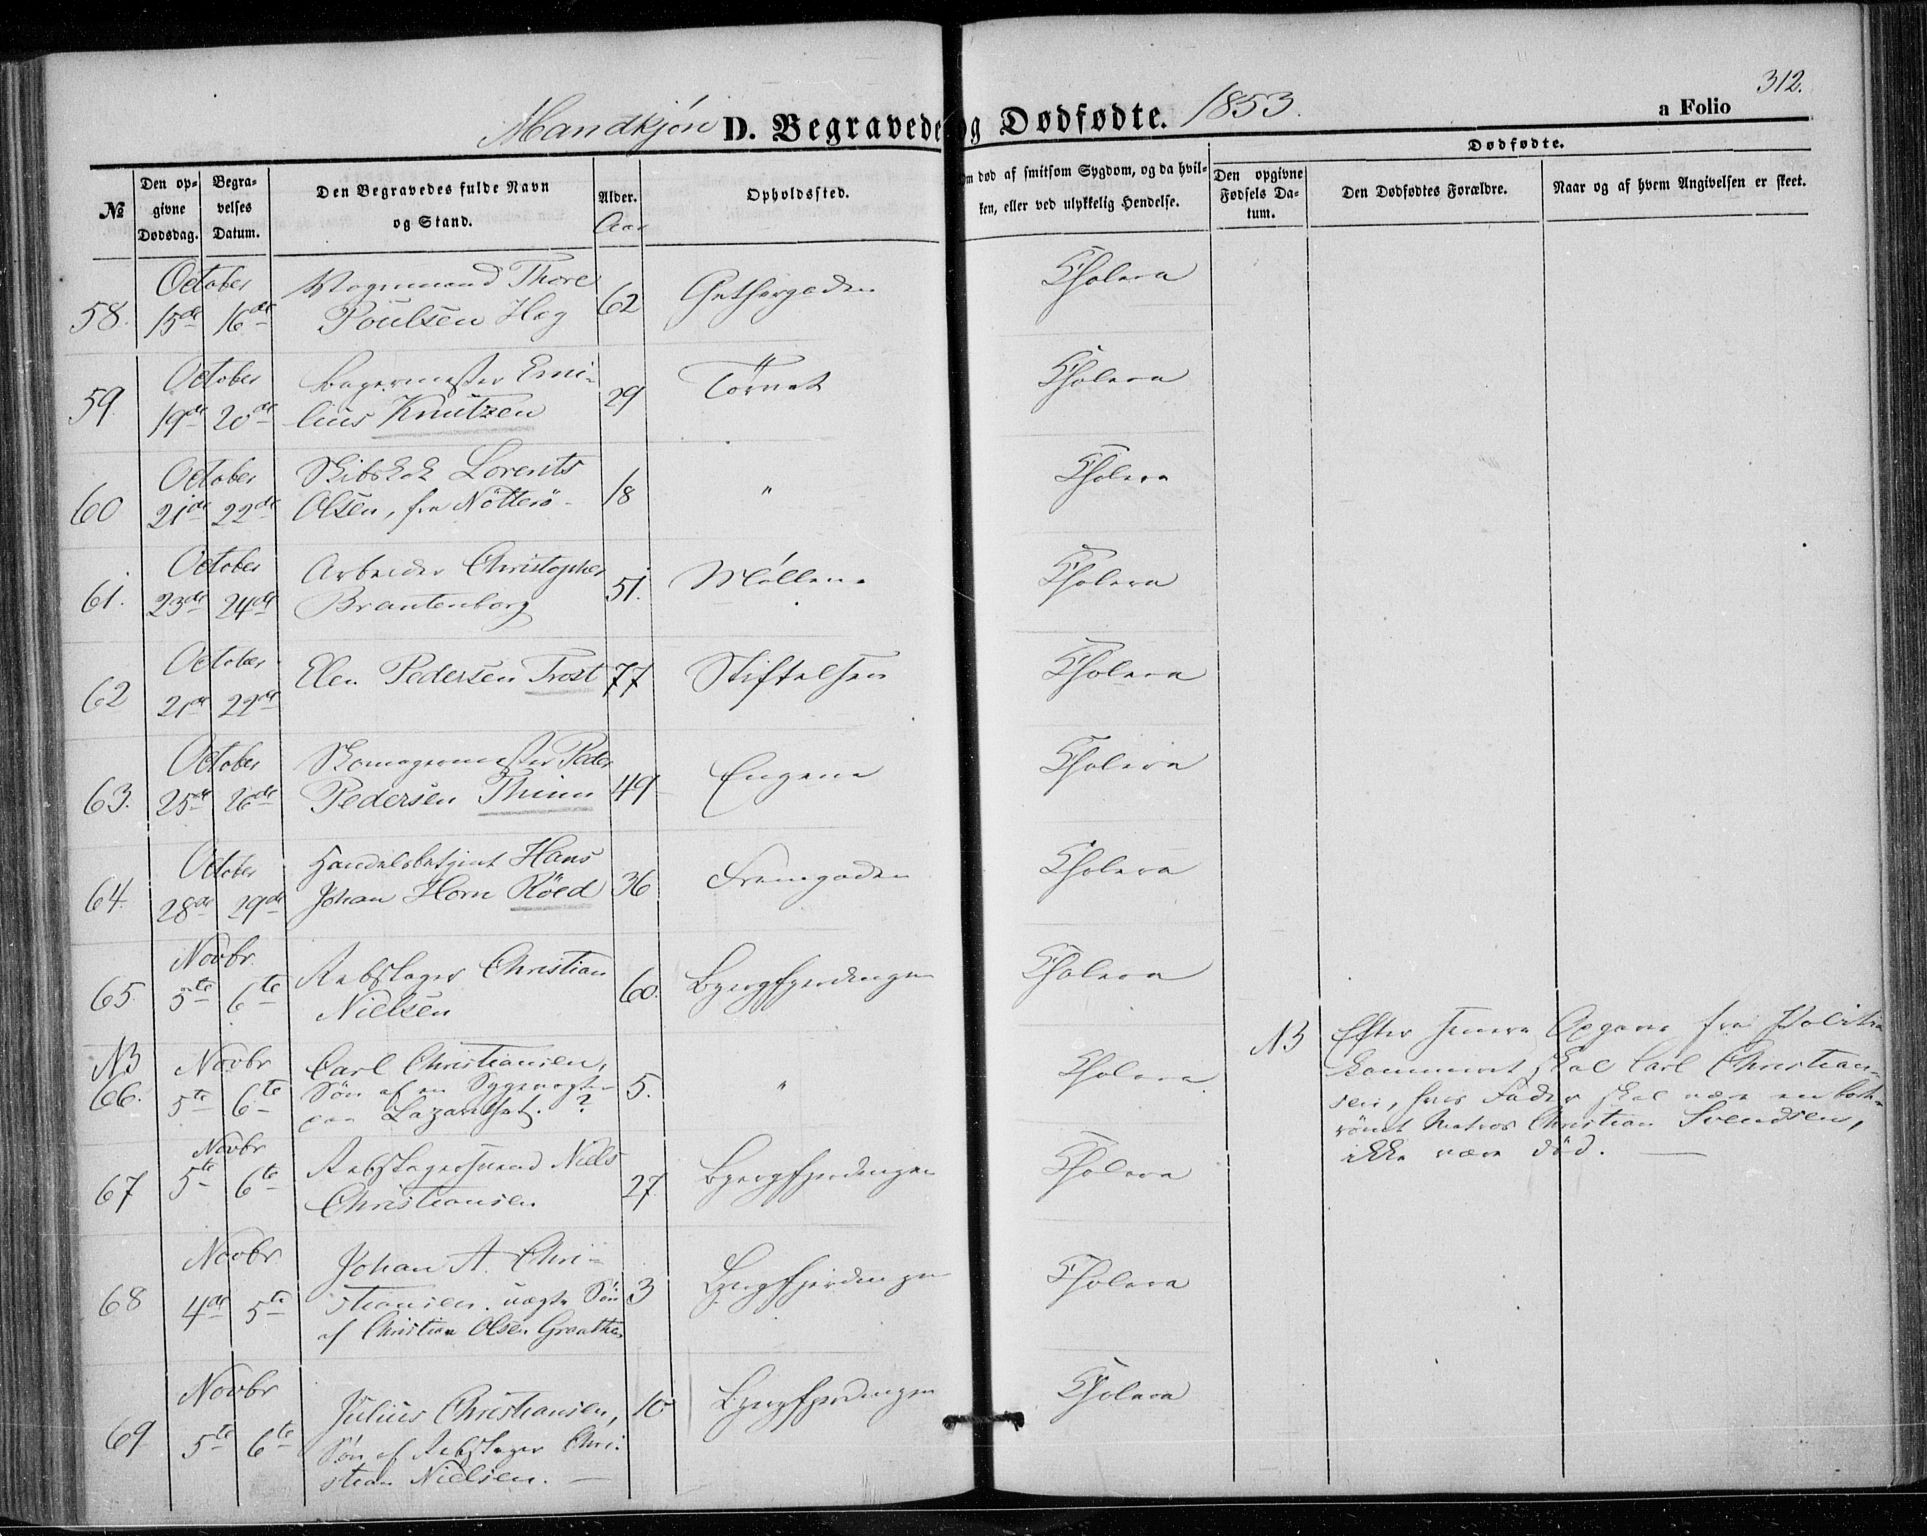 312.
Mandkjøn D. Begravede og Dødfødte. 1853.
a Folio
№
Den op-
givne
Dødsdag.
Begra-
velses
Datum.
Den Begravedes fulde Navn
og Stand.
Alder.
Aar
Opholdssted.
Om død af smitsom Sygdom, og da hvil-
ken, eller ved ulykkelig Hendelse.
Dødfødte.
Den opgivne
Fødsels Da-
tum.
Den Dødfødtes Forældre.
Naar og af hvem Angivelsen er skeet.
58. October 15de 16de Vognmand Thore
Poulsen Hæg 62 Gethergaden Cholera
59. October 19de 20de Bagermester Emi-
lius Knutzen 29 Törnet Cholera
60 October 21de 22de Skibskok Lorents
Olsen, fra Nötterö 18 " Cholera
61. October 23de 24de Arbeider Christopher
Brantenborg 51. Møllene Cholera
62 October 21de 22de Elen Pedersen Trost 77 Stiftelsen Cholera
63. October 25de 26de Skomagermester Peder
Pedersen Thinn 49 Engene Cholera
64. October 28de 29de Handelsbetjent Hans
Johan Horn Röed 36 Fremgaden Cholera
65 Novbr 5te 6te Rebslager Christian
Nielsen 60. Bjergfjerdingen Cholera
NB
66. Novbr 5te 6te Carl Christiansen,
Sön af en Sygevogter
paa Lazarethet. ? 5. " Cholera
NB Efter senere Opgave fra Politie
kammeret skal Carl Christian-
sen, hvis Fader skal være en bort-
römt Matros Christian Svendsen,
ikke være död.
67 Novbr 5te 6te Rebslagersvend Niels
Christiansen 27. Bjergfjerdingen Cholera
68 Novbr 4de 5te Johan A. Chri-
stiansen. uægte Sön
af Christian Olsen Graathen 3 Bjergfjerdingen Cholera
69 Novbr 5te 6te Julius Christiansen,
Sön af Rebslager Chri-
stian Nielsen. 10 Bjergfjerdingen Cholera